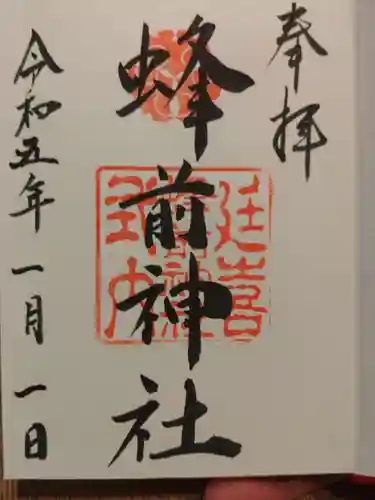 奉拝
蜂前神社
延喜
式内
令和五年一月一日